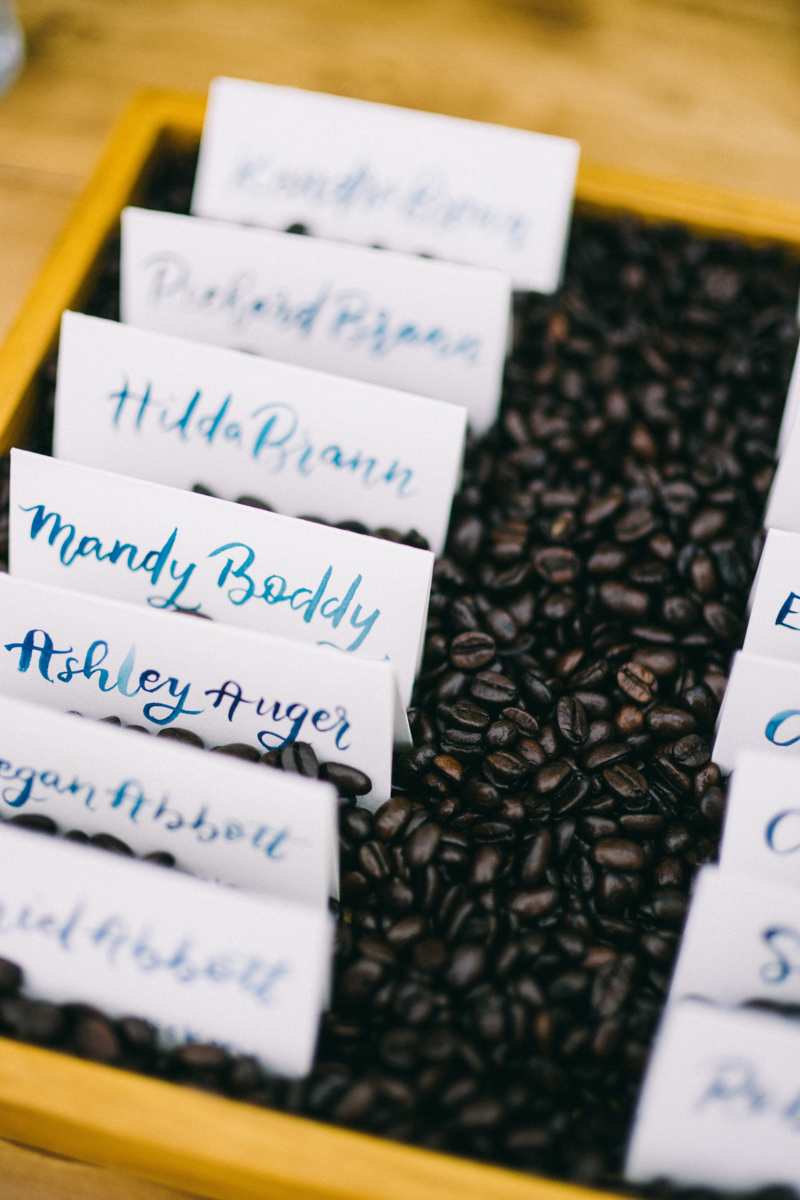 Richard Brann
Hilda Brann
Mandy Boddy
Ashley Auger
egan Abbott
niel Abbott
E
S